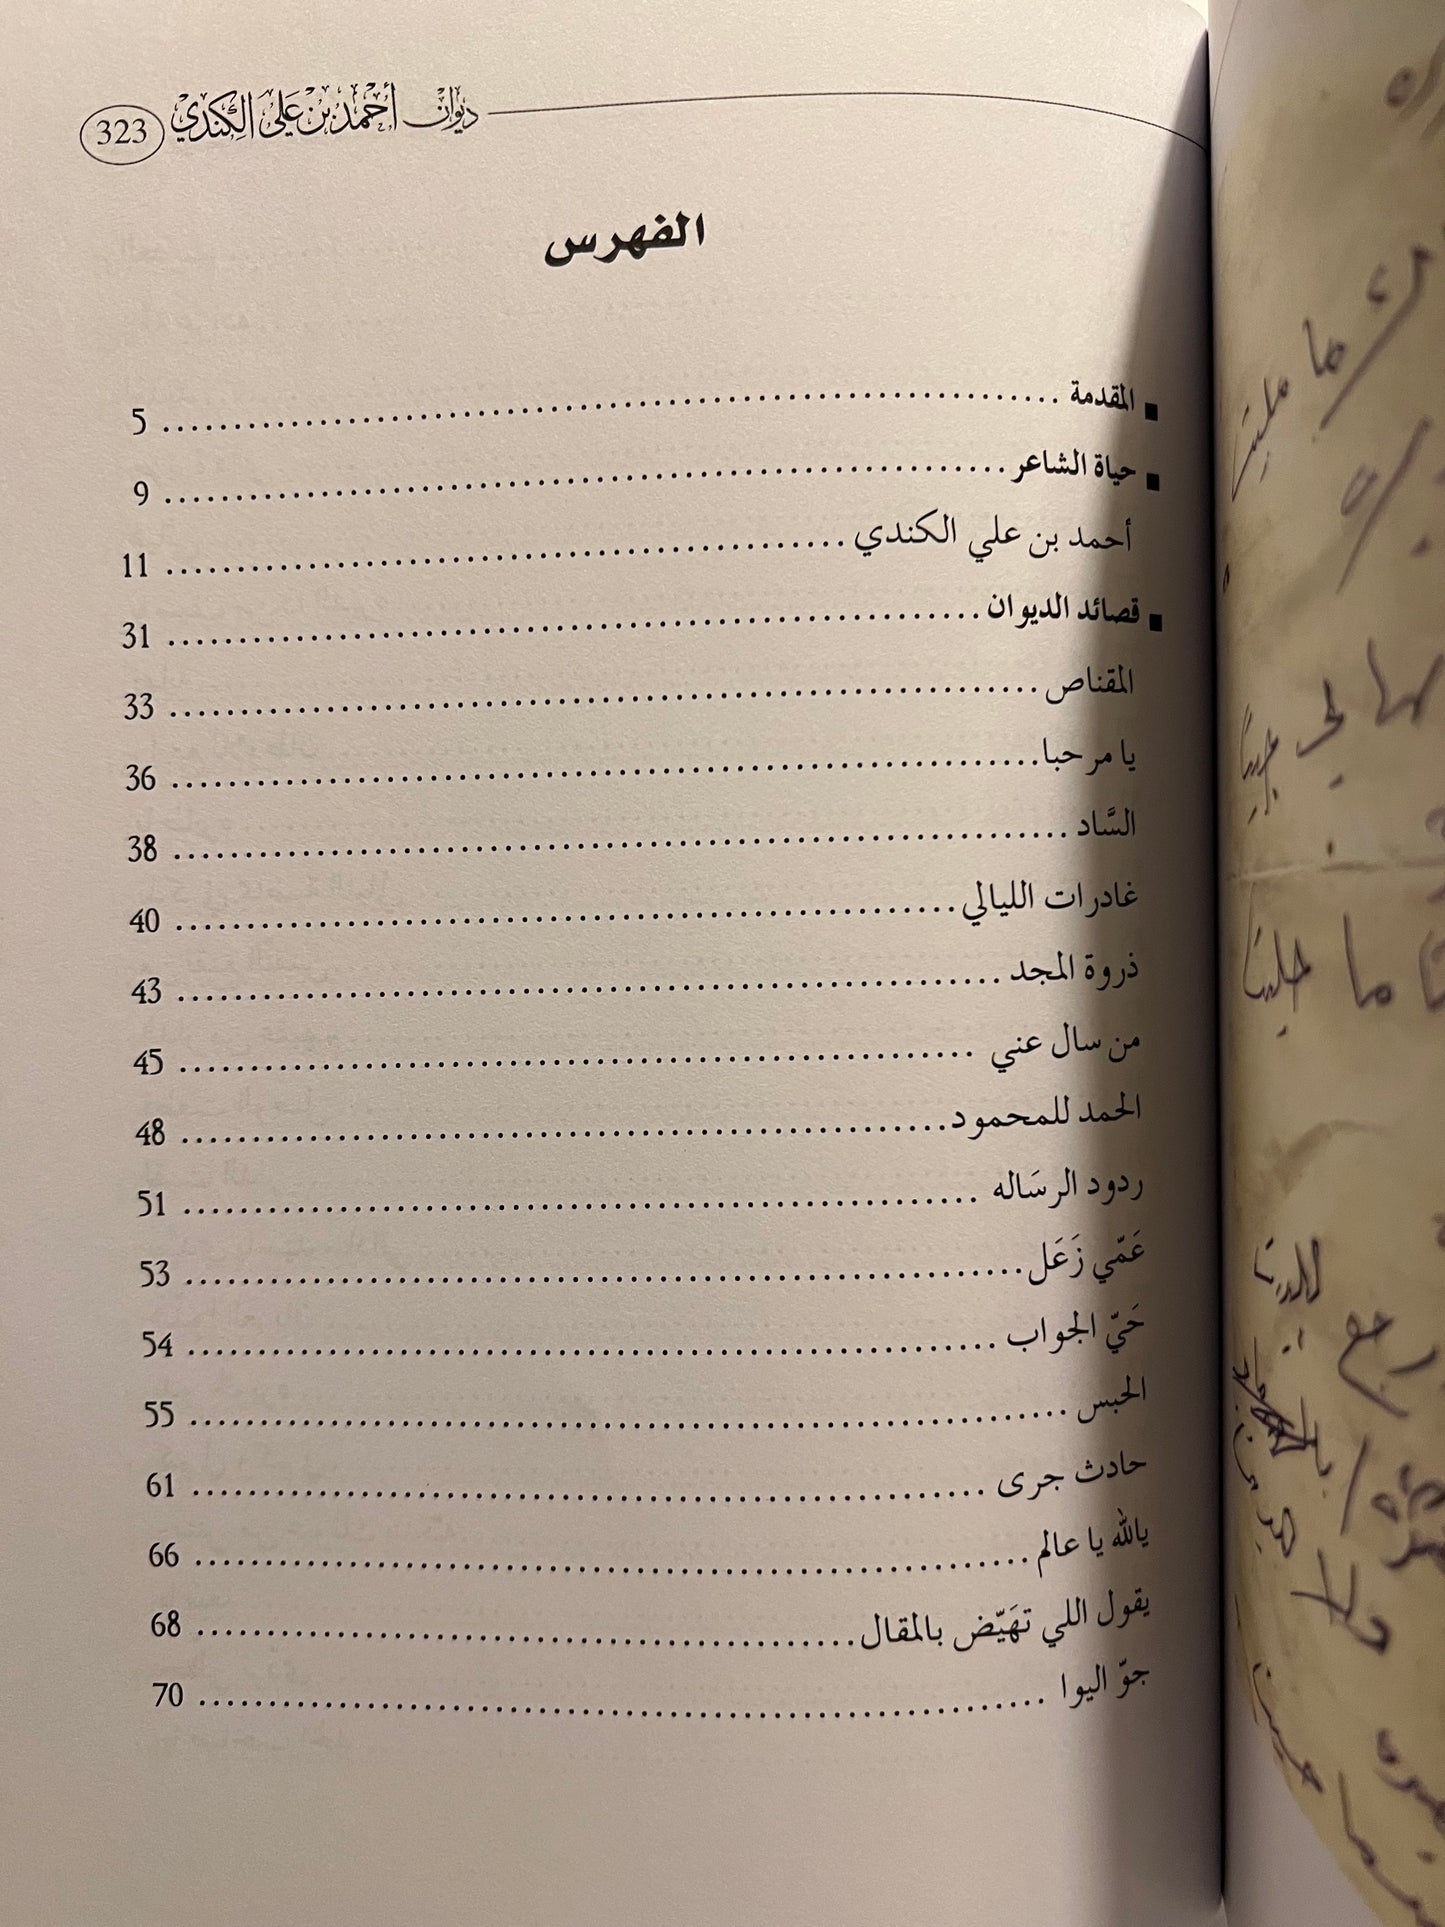 ديوان أحمد بن علي الكندي 323
الفهرس
■ المقدمة 5
■ حياة الشاعر 9
أحمد بن علي الكندي 11
■ قصائد الديوان 31
المقناص 33
يا مرحبا 36
السَّاد 38
غادرات الليالي 40
ذروة المجد 43
من سال عني 45
الحمد للمحمود 48
ردود الرسَاله 51
عَمّي زَعَل 53
حَيّ الجواب 54
الحبس 55
حادث جرى 61
يالله يا عالم 66
يقول اللي تهَيّض بالمقال 68
جوّ اليوا 70